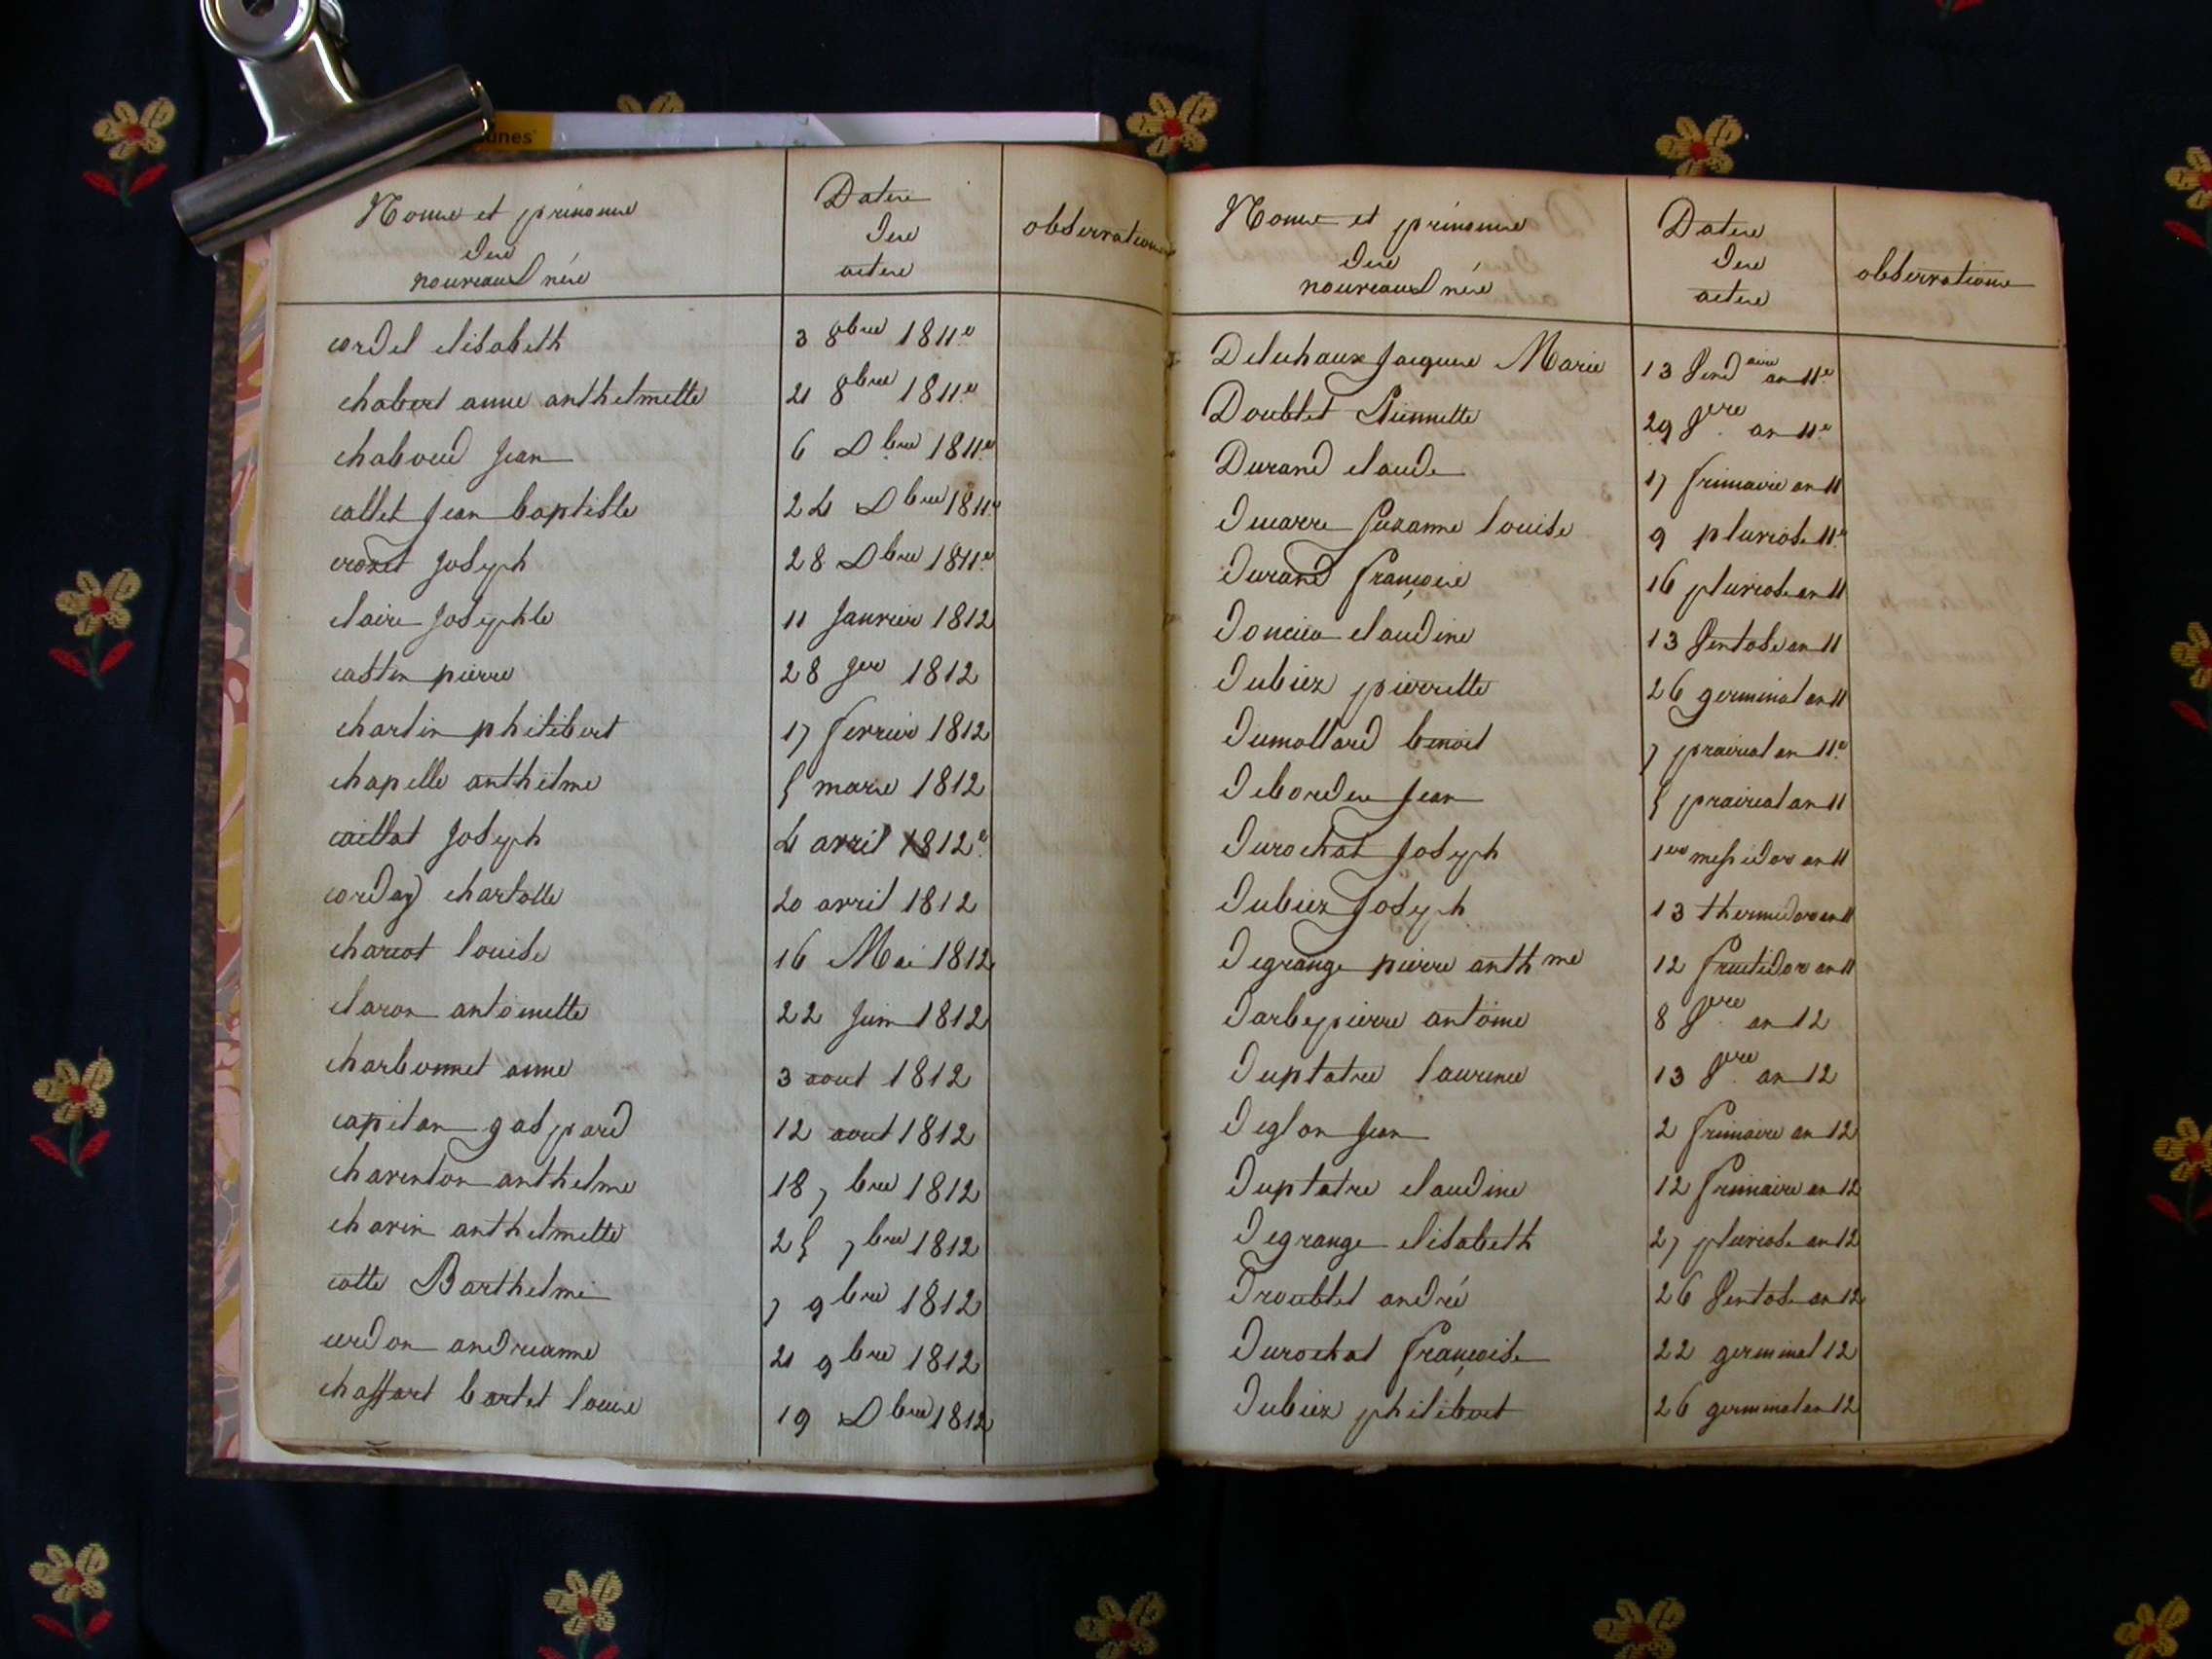 unes
Noms et prénoms
des
nouveaux nés
Dates
des
actes
observations
cordel elisabeth 3 8bre 1811
chabert anne anthelmette 21 8bre 1811
chaboud jean 6 Dbre 1811
callet jean baptiste 24 Dbre 1811
crozet joseph 28 Dbre 1811
claire josephte 11 janvier 1812
castin pierre 28 jer 1812
charlin philibert 17 fevrier 1812
chapelle anthelme 5 mars 1812
caillat joseph 4 avril 1812
corday charlotte 20 avril 1812
chariot louise 16 Mai 1812
claron antoinette 22 juin 1812
charbonnet anne 3 aout 1812
capitan gaspard 12 aout 1812
charenton anthelme 18 7bre 1812
charin anthelmette 25 7bre 1812
cotte Barthelmi 7 9bre 1812
cerdon andrianne 21 9bre 1812
chaffart bartet louis 19 Dbre 1812
Noms et prénoms
des
nouveaux nés
Dates
des
actes
observations
Deluchaux jacques Marie 13 Vendaire an 11
Doublet 29 Vre an 11
Durand claude 17 frimaire an 11
Ducarre suzanne louise 9 pluviose 11
Durand françois 16 pluviose an 11
Doncieu claudine 13 Ventose an 11
Dubiez pierrette 26 germinal an 11
Dumollard benoit 7 prairial an 11
Debordes jean 5 prairial an 11
Durochat joseph 1er messidor an 11
Dubiez joseph 13 thermidor an 11
Degrange pierre anthme 12 fructidor an 11
Darbey pierre antoine 8 Vre an 12
Duplatre laurence 13 Vre an 12
Deglon jean 2 frimaire an 12
Duplatre claudine 12 frimaire an 12
Degrange elisabeth 27 pluviose an 12
Droublet andré 26 Ventose an 12
Durochat françoise 22 germinal 12
Dubiez philibert 26 germinal an 12